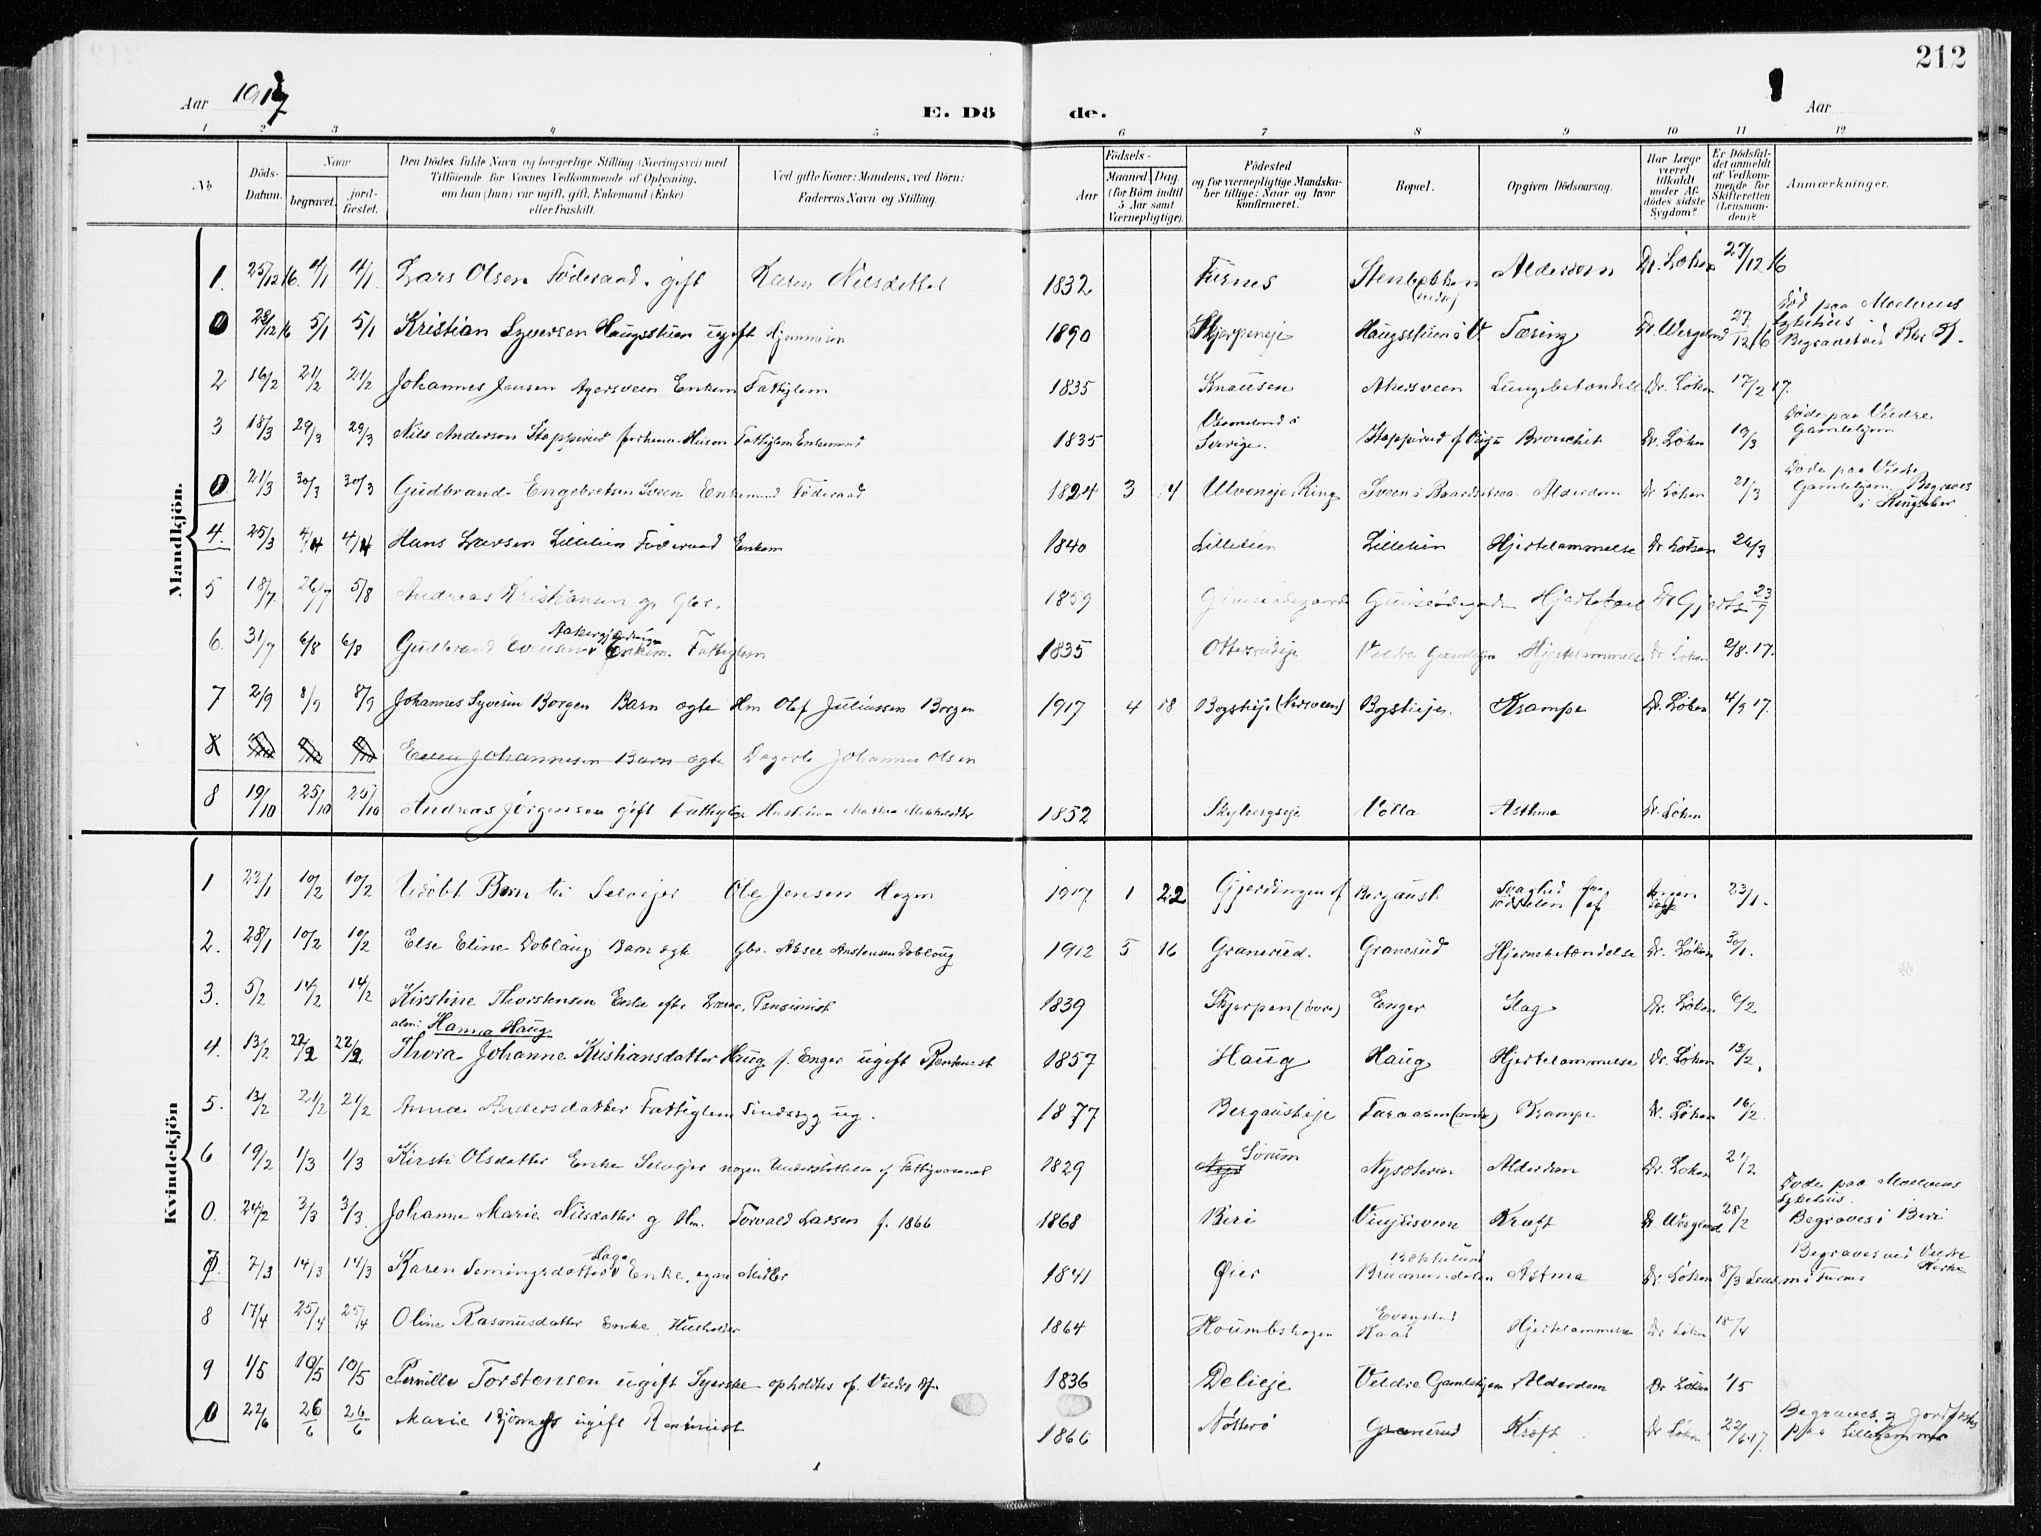 212
Aar 1917
E. Döde.
Aar
1 2 3 4 5 6 7 8 9 10 11 12
No
Döds-Datum.
Naar
begravet.
jordfæstet.
Den Dödes fulde Navn og borgerlige Stilling (Næringsvei) med
Tilföiende for Voxnes Vedkommende af Oplysning,
om han (hun) var ugift, gift, Enkemand (Enke)
eller fraskilt.
Ved gifte Koner: Mandens, ved Börn:
Faderens Navn og Stilling.
Födsels-
Aar
Maaned. Dag.
(for Börn indtil
5 Aar samt
Værnepligtige).
Födested
og for værnepligtige Mandska-
ber tillige: Naar og hvor
konfirmeret.
Bopæl.
Opgiven Dödsaarsag.
Har Læge
været
tilkaldt
under Af-
dödes sidste
Sygdom?
Er Dödsfal-
det anmeldt
af Vedkom-
mende for
Skifteretten
(Lensman-
den)?
Anmærkninger.
Mandkjön.
1. 25/12 16. 4/1 4/1. Lars Olsen Föderaad. gift Karen Nilsdatter 1832 Furnes Stenbekken Alderdom Dr. Løken 27/12 16
0 23/12 16 5/1 5/1 Kristian Syversen Haugsstuen ugift Hjemmesøn 1890 Skjerpeneje Haugsstuen i V. Tæring Dr. Wergeland 27/12 16 Død paa Moelvens Sykehus. Begravet ved Rbs K.
2 16/2 21/2 21/2 Johannes Jensen Agersveen Enkem Fattiglem 1835 Knausen Akersveen Lungebetændelse Dr. Løken 17/2 17.
3 18/3 29/3 29/3 Nils Anderson Stoppirud forhenv. Husm Fattiglem Enkemand 1835 Sverige. Stoppirud Bronchit Dr. Løken 19/3 Døde paa Veldre Gamlehjem
0 21/3 30/3 30/3 Gudbrand Engebretsen Sveen Enkemand Föderaad 1824 3 4 Ulveneje Ring Sveen i Alderdom Dr. Løken 21/3 Døde paa Veldre Gamlehjem Begraves i Ringsaker
4. 25/3 4/4 4/4 Hans Larsen Lillelien Föderaad Enkem 1840 Lillelien Lillelien Hjertelammelse Dr Løken 26/3
5 18/7 26/7 5/8 Andreas Kristiansen g. Gbr. 1859 Hjertefeil Dr Gjertsen 23/7
6. 31/7 6/8 6/8 Gudbrand Evensen Enkem. Fattiglem 1835 Otterudeje Veldre Gamlehjem Hjertelammelse Dr Løken 2/8. 17.
7 2/9 8/9 8/9 Johannes Syverin Borgen Barn ægte Hm Olef Juliussen Borgen 1917 4 18 Bogstieje (Nersveen) Bogstieje. Krampe Dr. Løken 4/9 17.
8 Johannesen Barn ægte Dagarb Johannes Olsen
8 19/10 25/10 25/10 Andreas Jørgensen gift Fattiglem Hustruen Mathea 1852 Skybergseje Volla Asthma Dr. Løken
Kvindekjön
1 22/1 10/2 10/2 Udøbt Barn til Selveier Ole Jensen Hagen 1917 1 22 Gjerdingen Bergaust Svaghed fra Fødselen af Ingen Læge 23/1.
2. 28/1 10/2 10/2 Else Eline Dobloug Barn ægte Gbr. Aksel Anstensen Dobloug 1912 5 16 Granerud. Granerud Hjernebetændelse Dr. Løken 30/1.
3. 5/2 14/2 14/2 Kirstine Thorstensen Enke efter Lærer, Pensionist 1839 Skjerpen (øvre) Enger Slag Dr. Løken 6/2
alm: Hanna Haug
4. 13/2 22/2 22/2 Thora Johanne Kristiansdatter Haug f. Enger ugift Rentenist 1857 Haug Haug Hjertelammelse Dr. Løken 13/2.
5. 13/2 21/2 21/2 Anna Andersdatter Fattiglem Sindssyg ug. 1877 Bergausteje Taraasen Krampe Dr. Løken 16/2
6 19/2 1/3 1/3 Kirsti Olsdatter Enke Selveier nogen Understøttelse af Fattigvæsenet 1829 Sørum Nysæteren Alderdom Dr. Løken 21/2
0. 24/2 3/3 3/3. Johanne Marie Nilsdatter g Hm. Torvald Larsen f. 1866 1868 Biri Kræft Dr Wergeland 28/2 Døde paa Moelvens Sykehus. Begraves i Biri
7. 7/3 14/3 14/3 Karen Semingsdatter Hage Enke, egne Midler 1841 Øier Bækkelund Brumunddalen Astma Dr. Løken 8/3 Lensm i Furnes Begraves ved Veldre Kirke
8 17/4 25/4 25/4 Oline Rasmusdatter Enke Husholder 1864 Houmbshagen Evenstad Kaas Hjertelammelse Dr Løken 18/4
9 1/5 10/5 10/5 Pernille Torstensen ugift Syerske opholdtes af Veldre 1836 Delieje Veldre Gamlehjem Alderdom Dr Løken 1/5
0 22/6 26/6 26/6 Marie ugift Rentenist 1866 Nøtterø Granerud Kræft Dr Løken 22/6 17. Begraves og Jordfæstes paa Lillehammer